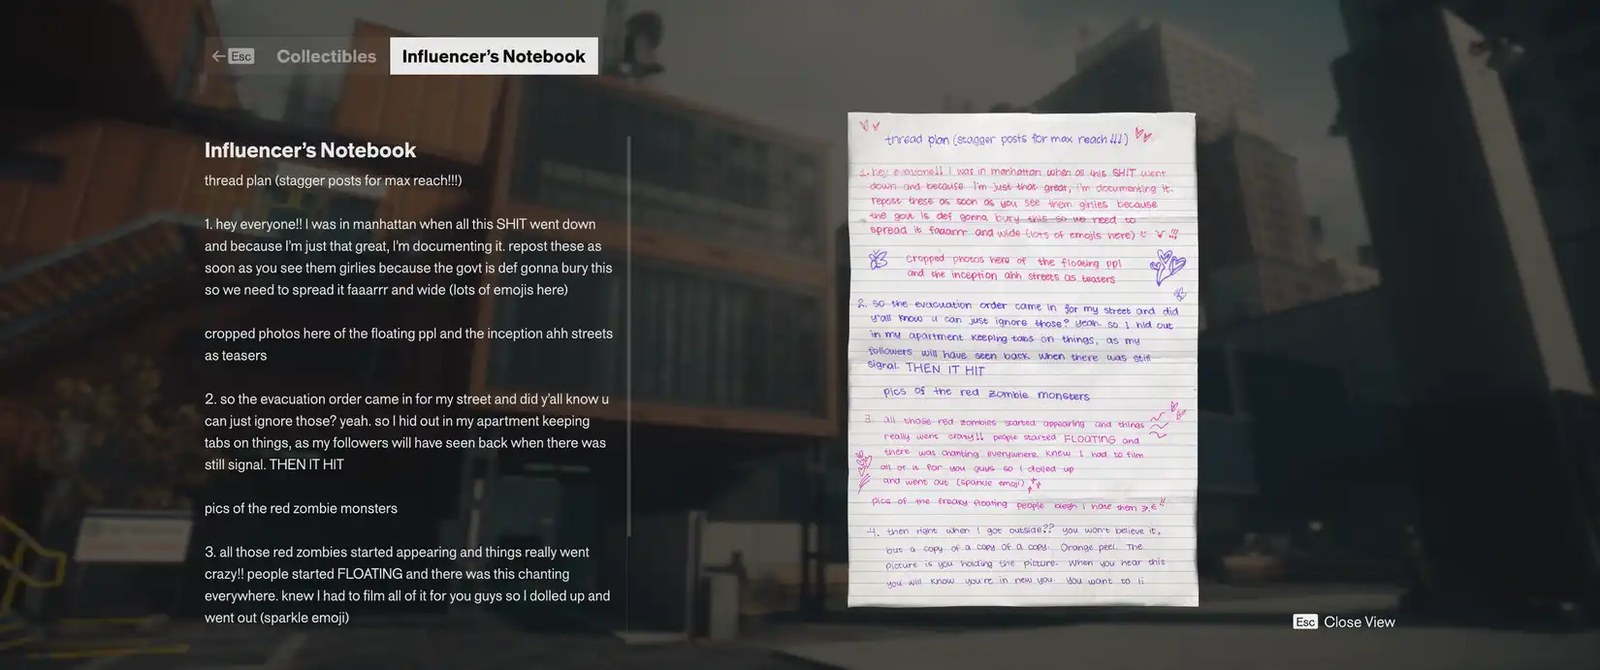 Esc Collectibles Influencer’s Notebook
Influencer’s Notebook
thread plan (stagger posts for max reach!!!)
1. hey everyone!! I was in manhattan when all this SHIT went down
and because I’m just that great, I’m documenting it. repost these as
soon as you see them girlies because the govt is def gonna bury this
so we need to spread it faaarrr and wide (lots of emojis here)
cropped photos here of the floating ppl and the inception ahh streets
as teasers
2. so the evacuation order came in for my street and did y’all know u
can just ignore those? yeah. so I hid out in my apartment keeping
tabs on things, as my followers will have seen back when there was
still signal. THEN IT HIT
pics of the red zombie monsters
3. all those red zombies started appearing and things really went
crazy!! people started FLOATING and there was this chanting
everywhere. knew I had to film all of it for you guys so I dolled up and
went out (sparkle emoji)
thread plan (stagger posts for max reach!!!)
1. hey everyone!! I was in manhattan when all this SHIT went
down and because I'm just that great, I'm documenting it.
repost these as soon as you see them girlies because
the govt is def gonna bury this so we need to
spread it faaarrr and wide (lots of emojis here) !!!
cropped photos here of the floating ppl
and the inception ahh streets as teasers
2. so the evacuation order came in for my street and did
y'all know u can just ignore those? yeah. so I hid out
in my apartment keeping tabs on things, as my
followers will have seen back when there was still
signal. THEN IT HIT
pics of the red zombie monsters
3. all those red zombies started appearing and things
really went crazy!! people started FLOATING and
there was chanting everywhere. knew I had to film
all of it for you guys so I dolled up
and went out (sparkle emoji)
pics of the freaky floating people blegh I hate them
4. then right when I got outside?? you won't believe it,
but a copy of a copy of a copy. Orange peel. The
picture is you holding the picture. When you hear this
you will know you're in new you. You want to li
Esc Close View